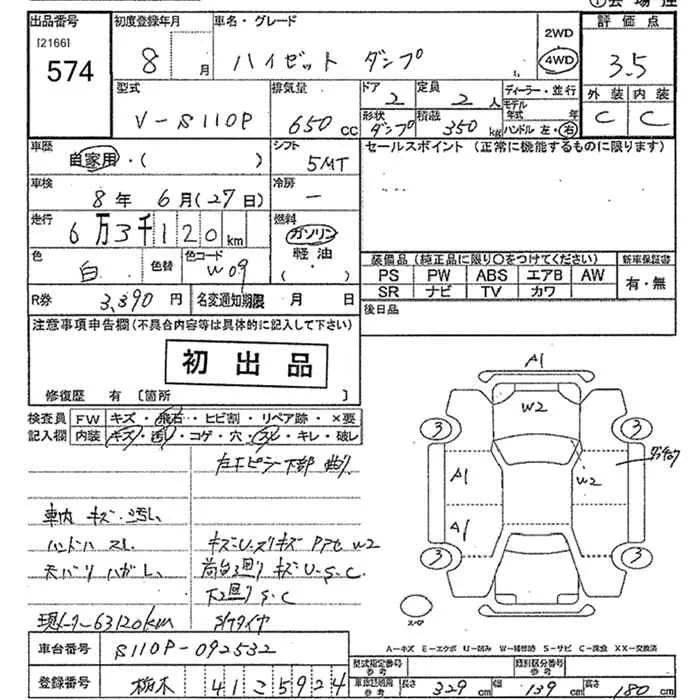 ① 会場
出品番号 初度登録年月 車名・グレード 評価点
[2166]
574
8 月 ハイゼット ダンプ 2WD 4WD 3.5
型式 排気量 ドア 定員 ディーラー・並行 外装 内装
V-S110P 650 CC 2 2 人 モデル年式 年 C C
形状 ダンプ 積載 350 kg ハンドル 左・右
車歴 自家用・( ) シフト 5MT セールスポイント (正常に機能するものに限ります)
車検 8年 6月(27日) 冷房 -
走行 6万3千120km 燃料 ガソリン 軽油 ( ・ )
色 白 色替 色コード W09
装備品 (純正品に限り○をつけてください) 新車保証書
PS PW ABS エアB AW 有・無
SR ナビ TV カワ
R券 3,390 円 名変通知期限 月 日 後日品
注意事項申告欄(不具合内容等は具体的に記入して下さい)
初出品
修復歴 有 [箇所 ]
検査員 FW キズ・飛石・ヒビ割・リペア跡・×要
記入欄 内装 キズ・汚れ・コゲ・穴・スレ・キレ・破レ
左Fピラー下部 曲り
車内 キズ・汚れ
ハンドル スレ
天バリ ハガレ
キズ・U・スリキズ P アセ W2
荷台3回り キズ・U・S・C
下回り S・C
現メーター63120km
A1
W2
3 3
A1 W2
A1
3 3
スペア
A-キズ E-エクボ U-凹み W-補修跡 S-サビ C-腐食 XX-交換済
車台番号 S110P-092532
登録番号 栃木 41 こ 5924
型式指定番号 参考 類別区分番号 参考
車両諸明細 参考 長さ 329 cm 幅 139 cm 高さ 180 cm